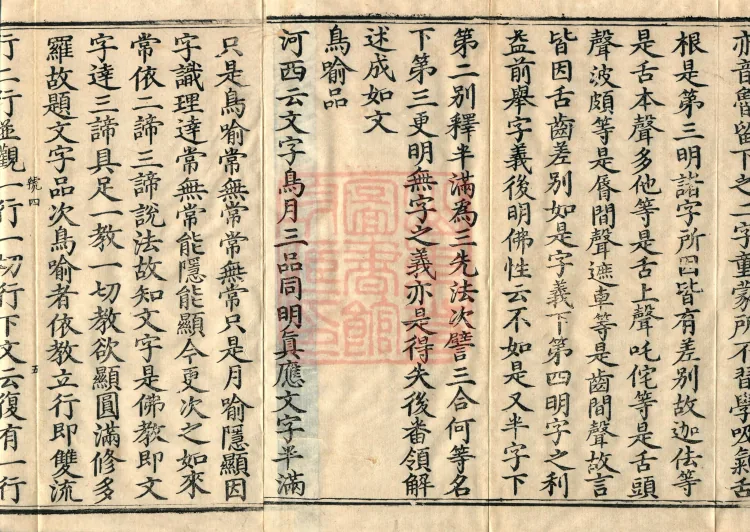 亦音魯留下之二字童蒙所不習學吸氣舌
根是第三明諸字所因皆有差別故迦佉等
是舌本聲多他等是舌上聲吒侘等是舌頭
聲波頗等是脣間聲遮車等是齒間聲故言
皆因舌齒差別如是字義下第四明字之利
益前舉字義後明佛性云不如是又半字下
第二別釋半滿為三先法次譬三合何等名
下第三更明無字之義亦是得失後番領解
述成如文
鳥喻品
河西云文字鳥月三品同明真應文字半滿
只是鳥喻常無常常無常只是月喻隱顯因
字識理達常無常能隱能顯今更次之如來
常依二諦三諦說法故知文字是佛教即文
字達三諦具足一教一切教欲顯圓滿修多
羅故題文字品次鳥喻者依教立行即雙流
號四
五
行二行並觀一行一切行下文云復有一行